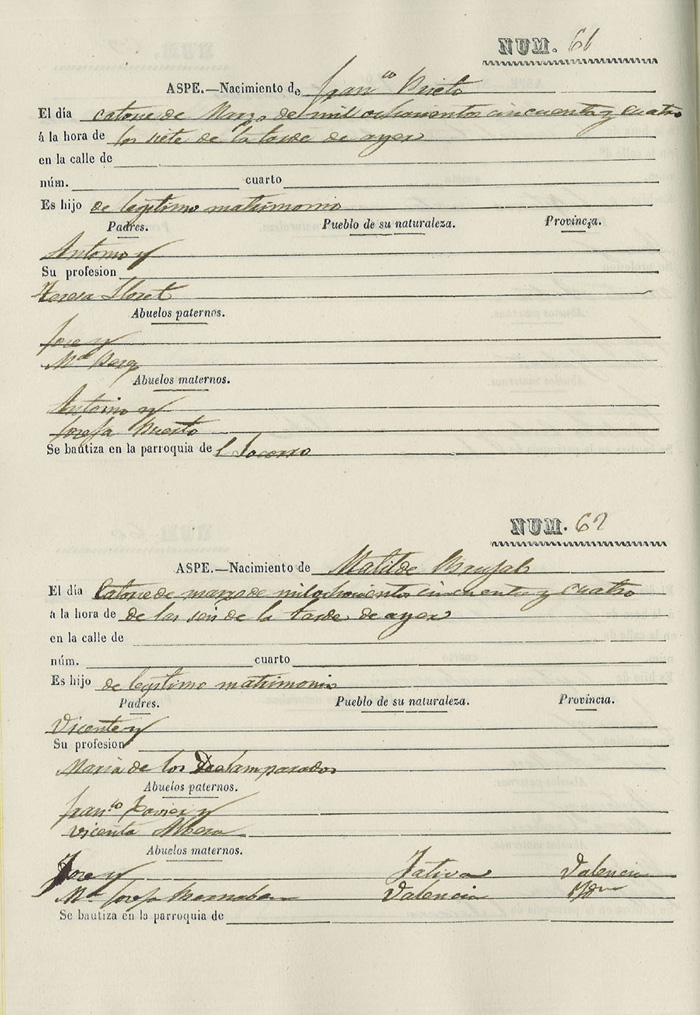 NUM. 61
ASPE.—Nacimiento de Fran.co Prieto
El día catorce de Marzo de mil ochocientos cincuenta y cuatro
á la hora de las siete de la tarde de ayer
en la calle de
núm. cuarto
Es hijo de legitimo matrimonio
Padres. Pueblo de su naturaleza. Provincia.
Antonio y
Su profesion
Teresa Lloret
Abuelos paternos.
Jose y
M.a
Abuelos maternos.
Antonio y
Josefa
Se bautiza en la parroquia de l Socorro
NUM. 62
ASPE.—Nacimiento de Matilde
El día Catorce de marzo de mil ochocientos cincuenta y cuatro
á la hora de de las seis de la tarde de ayer
en la calle de
núm. cuarto
Es hijo de legitimo matrimonio
Padres. Pueblo de su naturaleza. Provincia.
Vicente y
Su profesion
Maria de los Desamparados
Abuelos paternos.
Fran.co Xavier y
Vicenta
Abuelos maternos.
Jose y Jativa Valencia
M.a Josefa Bernabeu Valencia Yd
Se bautiza en la parroquia de